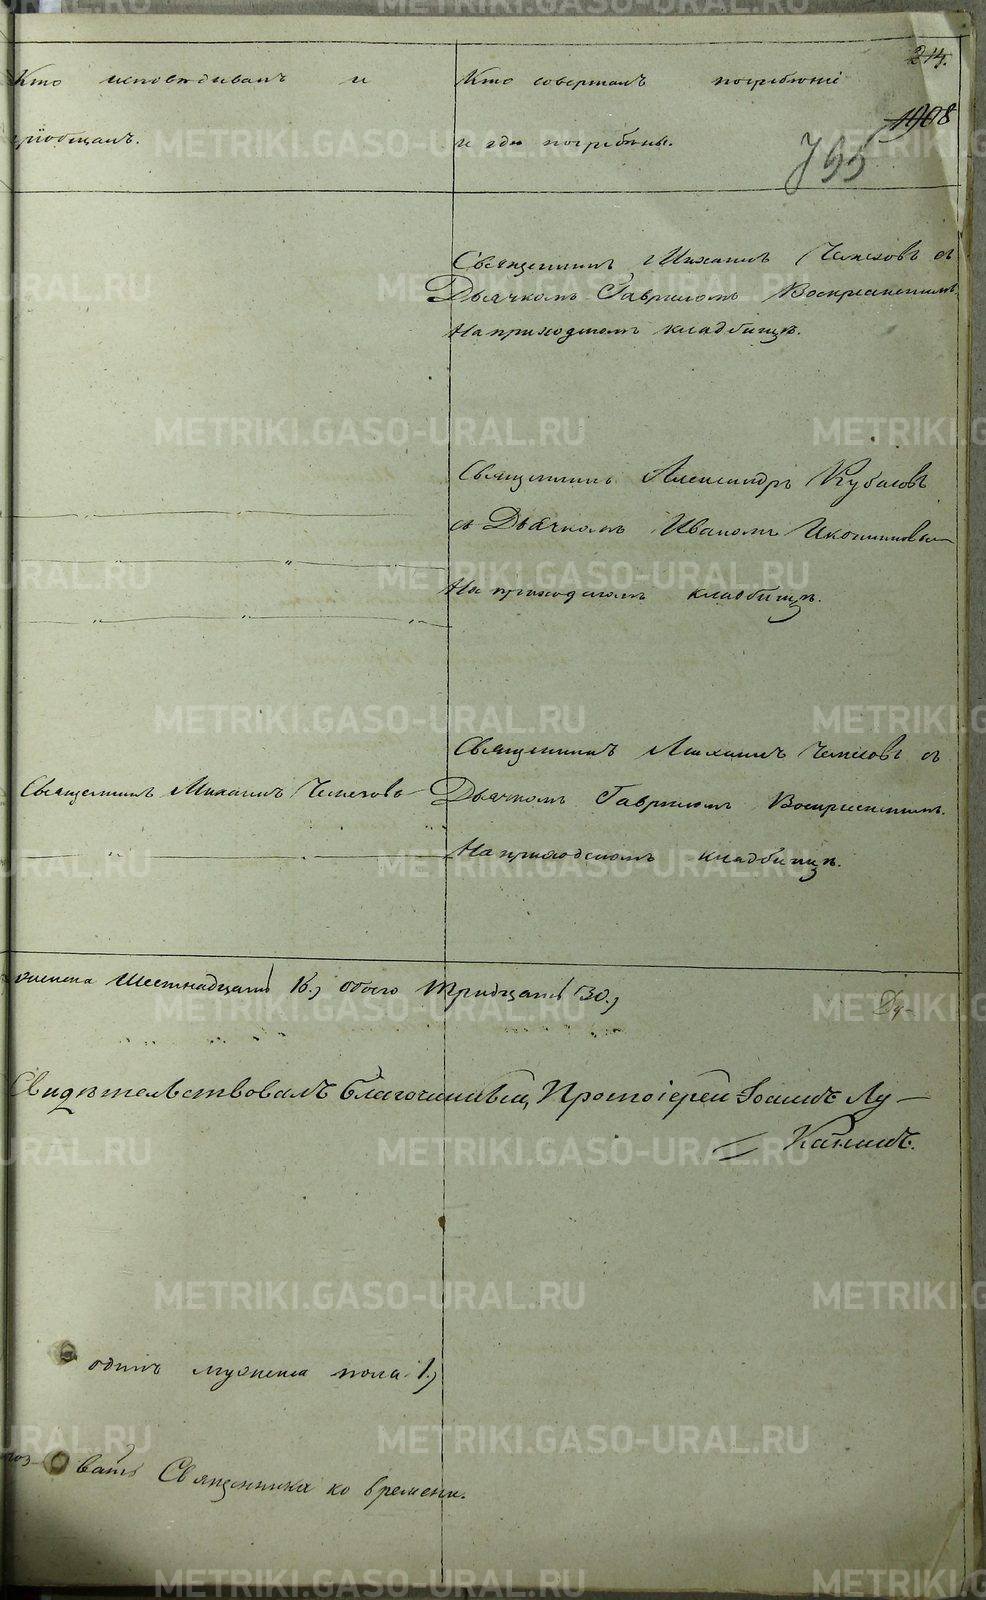 24.
1908
795
Кто исповѣдывалъ и
пріобщалъ.
Кто совершалъ погребеніе
и гдѣ погребены.
Священникъ Михаилъ Чемезовъ съ
Дьячкомъ Гавриломъ Воскресенскимъ.
На приходскомъ кладбищѣ.
Священникъ Александръ Кубасовъ
съ Дьячкомъ Иваномъ Иконниковым
На приходскомъ кладбищѣ.
Священникъ Михаилъ Чемезовъ съ
Священникъ Михаилъ Чемезовъ
Дьячкомъ Гавриломъ Воскресенскимъ.
На приходскомъ кладбищѣ.
женска Шестнадцать 16., обоего Тридцать 30.,
Ду-
Свидѣтельствовалъ Благочинный, Протоіерей Іоаннъ Лу-
Канинъ.
одинъ мужеска пола 1.,
вать Священника ко времени.
METRIKI.GASO-URAL.RU